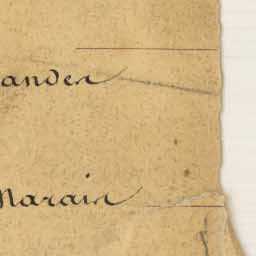 ander
Narain